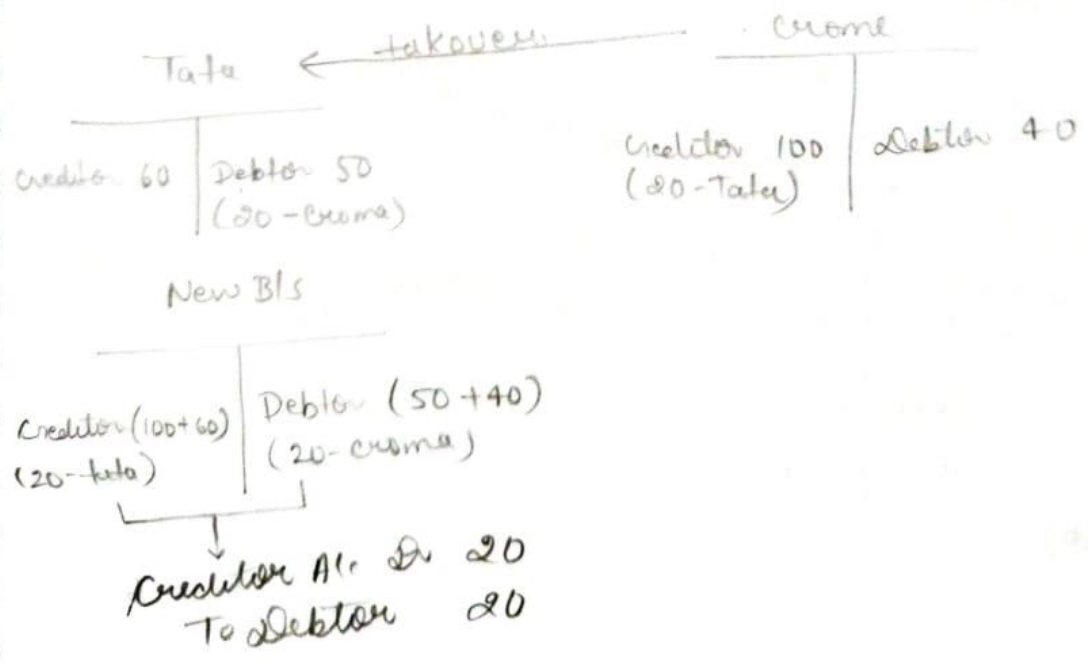 Tata takover Crome
Creditor 60 Debtor 50
(20-Croma)
Creditor 100 Debtor 40
(20-Tata)
New B/s
Creditor (100+60) Debtor (50+40)
(20-tata) (20-croma)
Creditor A/c Dr 20
To Debtor 20